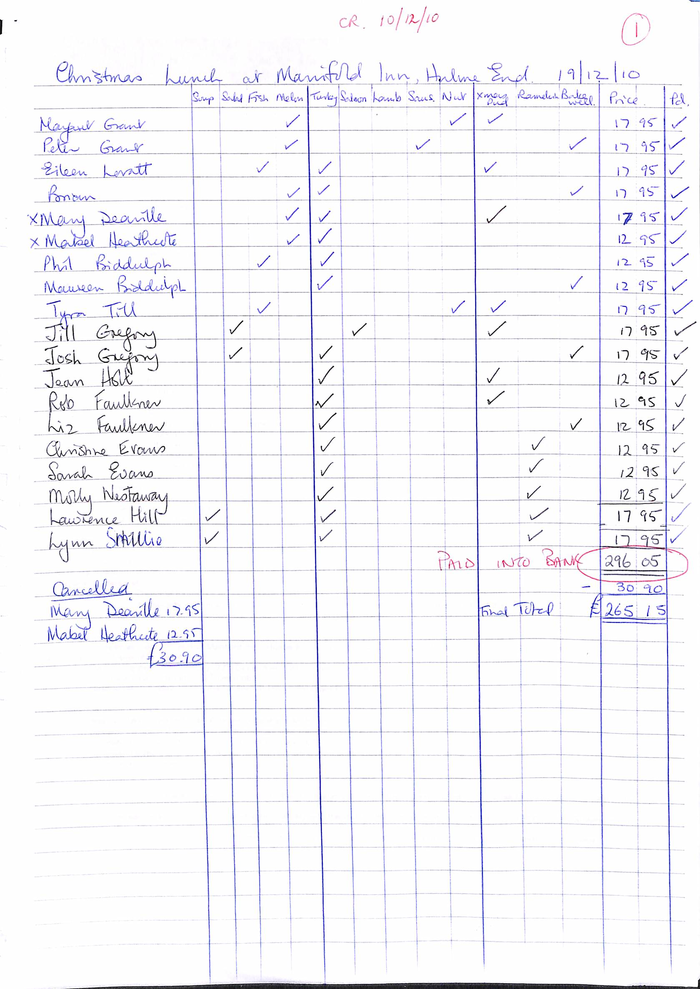 CR. 10/12/10
1
Christmas Lunch at Manifold Inn, Hulme End. 19/12/10
Soup Salad Fish Melon Turkey Salmon Lamb Nut Xmas Pud Price Pd.
Margaret Grant ✓ ✓ ✓ 17 95 ✓
Peter Grant ✓ ✓ ✓ 17 95 ✓
Eileen Lovatt ✓ ✓ ✓ 17 95 ✓
✓ ✓ ✓ 17 95 ✓
x Mary Deaville ✓ ✓ ✓ 17 95 ✓
x Mabel Heathcote ✓ ✓ 12 95 ✓
Phil Biddulph ✓ ✓ 12 95 ✓
Maureen Biddulph ✓ ✓ 12 95 ✓
Tyra Till ✓ ✓ ✓ 17 95 ✓
Jill Gregory ✓ ✓ ✓ 17 95 ✓
Josh Gregory ✓ ✓ ✓ 17 95 ✓
Jean Holt ✓ ✓ 12 95 ✓
Rob Faulkner ✓ ✓ 12 95 ✓
Liz Faulkner ✓ ✓ 12 95 ✓
Christine Evans ✓ ✓ 12 95 ✓
Sarah Evans ✓ ✓ 12 95 ✓
Molly Westaway ✓ ✓ 12 95 ✓
Lawrence Hill ✓ ✓ ✓ 17 95 ✓
Lynn ✓ ✓ ✓ 17 95 ✓
PAID INTO BANK 296 05
Cancelled - 30 90
Mary Deaville 17.95 Final Total £265 15
Mabel Heathcote 12.95
£30.90